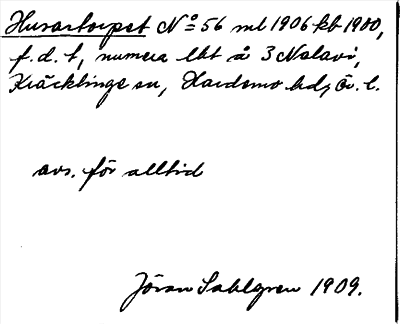 Husartorpet No 56 ml 1906 kb 1900,
f.d. t, numera lht å 3 Nalavi,
Kräcklinge sn, Hardemo hd, Ör. l.
avs. för alltid
Jöran Sahlgren 1909.